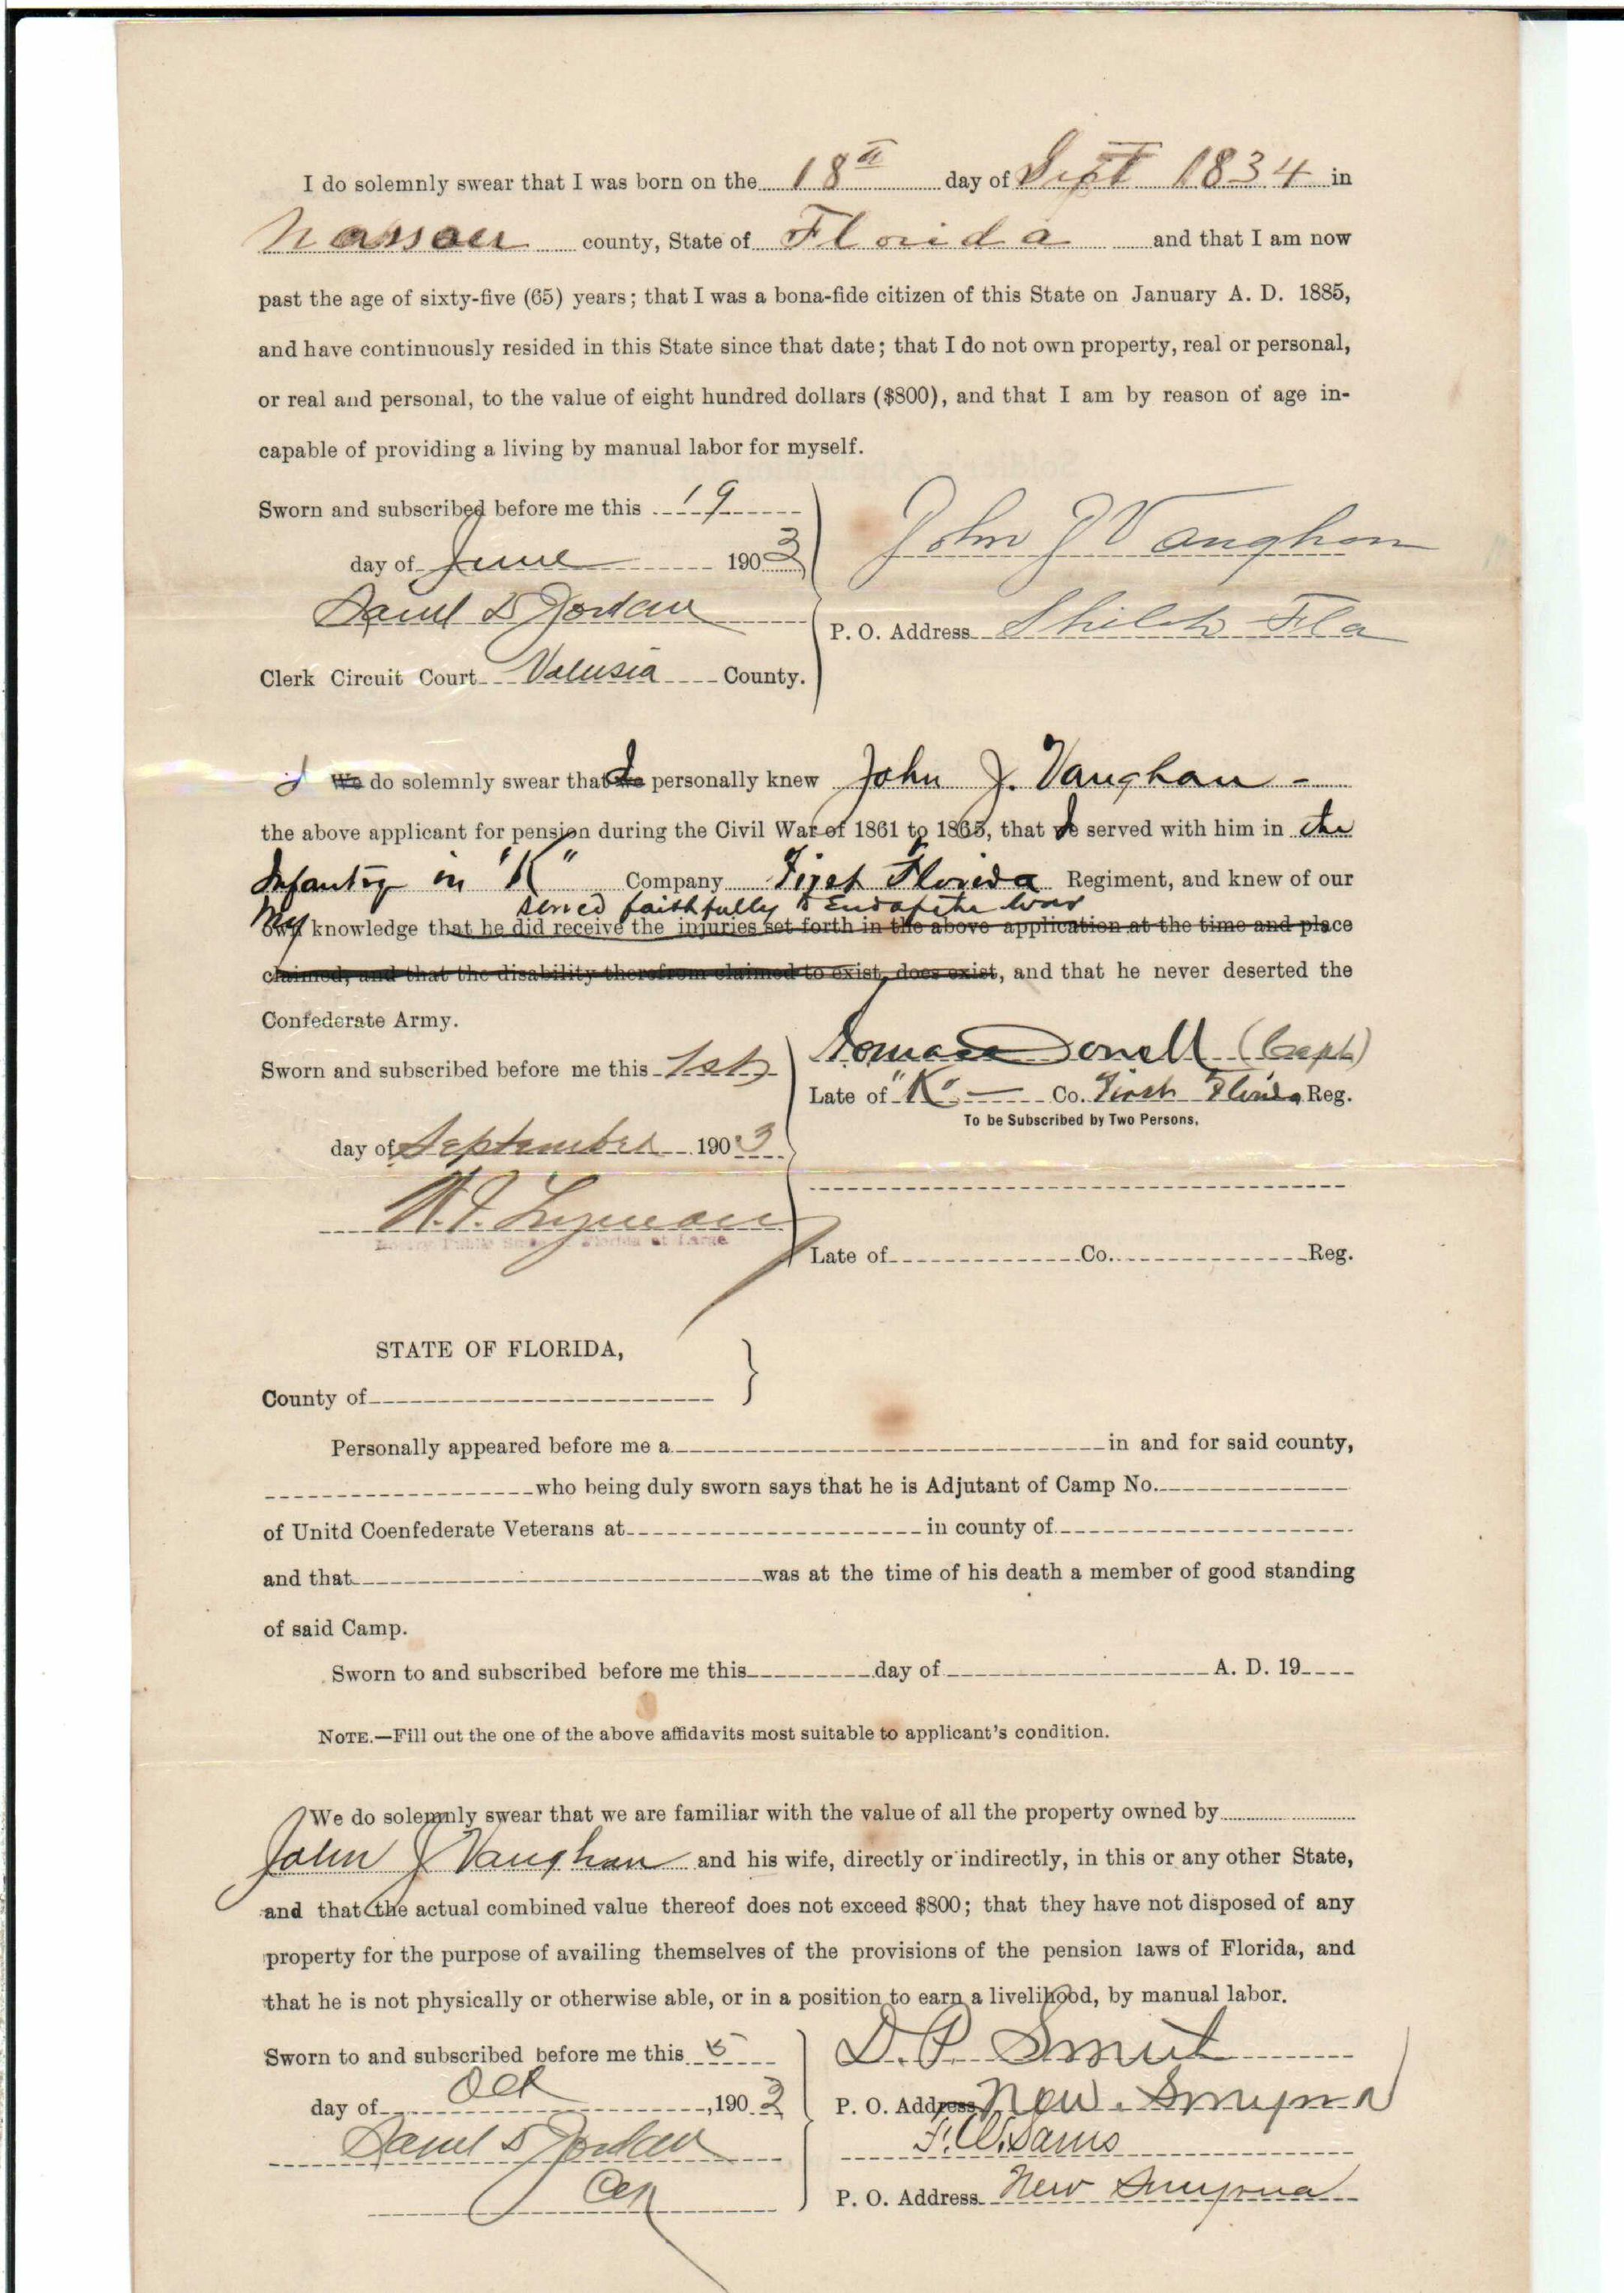 I do solemnly swear that I was born on the 18th day of Sept 1834 in
Nassau county, State of Florida and that I am now
past the age of sixty-five (65) years; that I was a bona-fide citizen of this State on January A. D. 1885,
and have continuously resided in this State since that date; that I do not own property, real or personal,
or real and personal, to the value of eight hundred dollars ($800), and that I am by reason of age in-
capable of providing a living by manual labor for myself.
Sworn and subscribed before me this 19
day of June 1903
John J Vaughan
Saml D Jordan
P. O. Address Shiloh Fla
Clerk Circuit Court Volusia County.
I We do solemnly swear that I we personally knew John J. Vaughan -
the above applicant for pension during the Civil War of 1861 to 1865, that I served with him in the
Infantry in "K" Company First Florida Regiment, and knew of our
served faithfully to End of the War
My own knowledge that he did receive the injuries set forth in the above application at the time and place
claimed, and that the disability therefrom claimed to exist, does exist, and that he never deserted the
Confederate Army.
(Capt)
Sworn and subscribed before me this 1st
Late of "K" Co. First Florida Reg.
To be Subscribed by Two Persons.
day of September 1903
Lyman
Notary Public State Florida at Large
Late of Co. Reg.
STATE OF FLORIDA,
County of
Personally appeared before me a in and for said county,
who being duly sworn says that he is Adjutant of Camp No.
of Unitd Coenfederate Veterans at in county of
and that was at the time of his death a member of good standing
of said Camp.
Sworn to and subscribed before me this day of A. D. 19
NOTE.—Fill out the one of the above affidavits most suitable to applicant's condition.
We do solemnly swear that we are familiar with the value of all the property owned by
John J Vaughan and his wife, directly or indirectly, in this or any other State,
and that the actual combined value thereof does not exceed $800; that they have not disposed of any
property for the purpose of availing themselves of the provisions of the pension laws of Florida, and
that he is not physically or otherwise able, or in a position to earn a livelihood, by manual labor.
Sworn to and subscribed before me this 5
D. P. Smit
day of Oct, 1903
P. O. Address New Smyrna
Saml D Jordan
F. W. Sams
Clk
P. O. Address New Smyrna